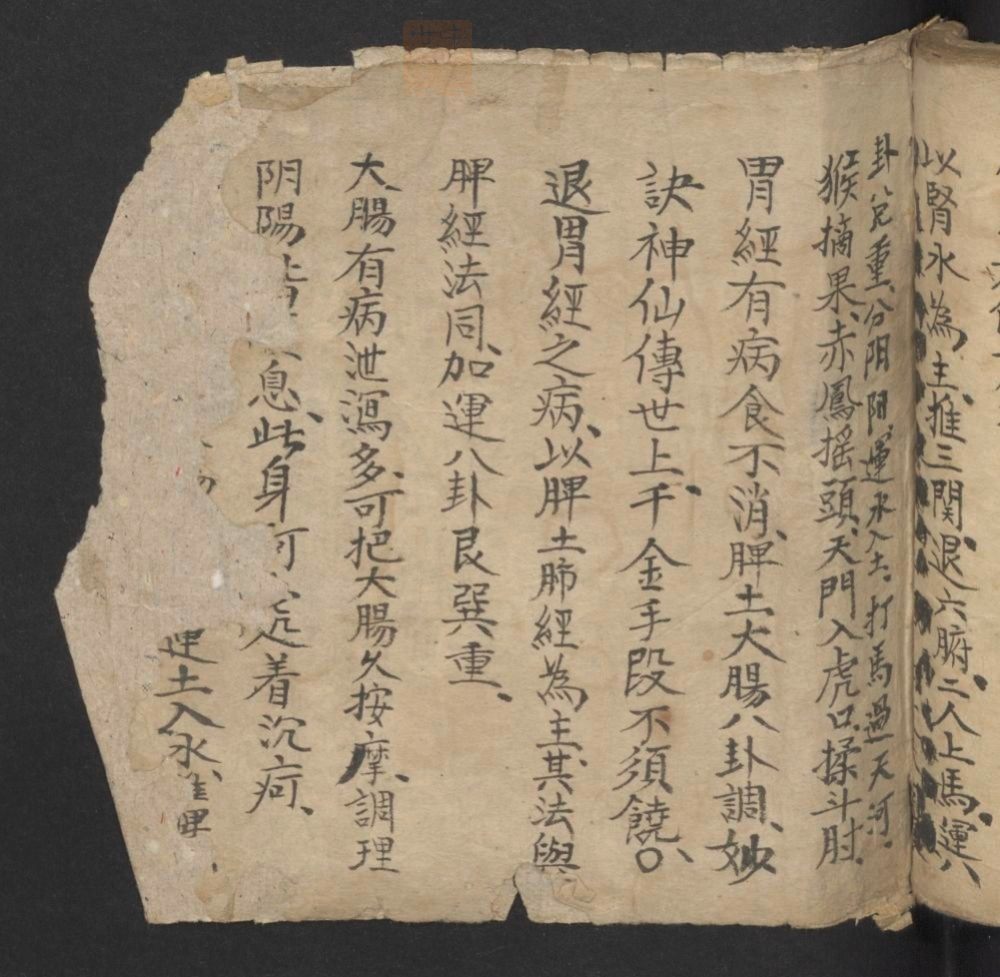 以腎水為主、推三關、退六腑、二人上馬、運八
卦兌重、分阴阳、運水入土、打馬過天河、
猴摘果、赤鳳摇頭、天門入虎口、揉斗肘、
胃經有病食不消、脾土大腸八卦調、妙
訣神仙傳世上、千金手段不須饒、○
退胃經之病、以脾土肺經為主、其法與
脾經法同、加運八卦艮巽重、
大腸有病泄瀉多、可把大腸久按摩、調理
阴陽皆 息、此身何 着沉疴、
運土入水、推脾、